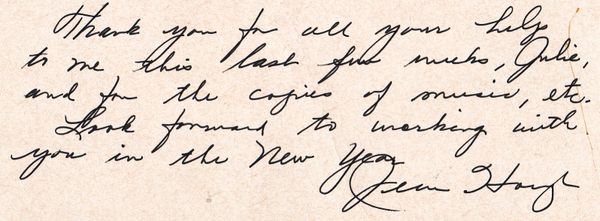 Thank you for all your help
to me this last few weeks, Julie,
and for the copies of music, etc.
Look forward to working with
you in the New Year
Jean